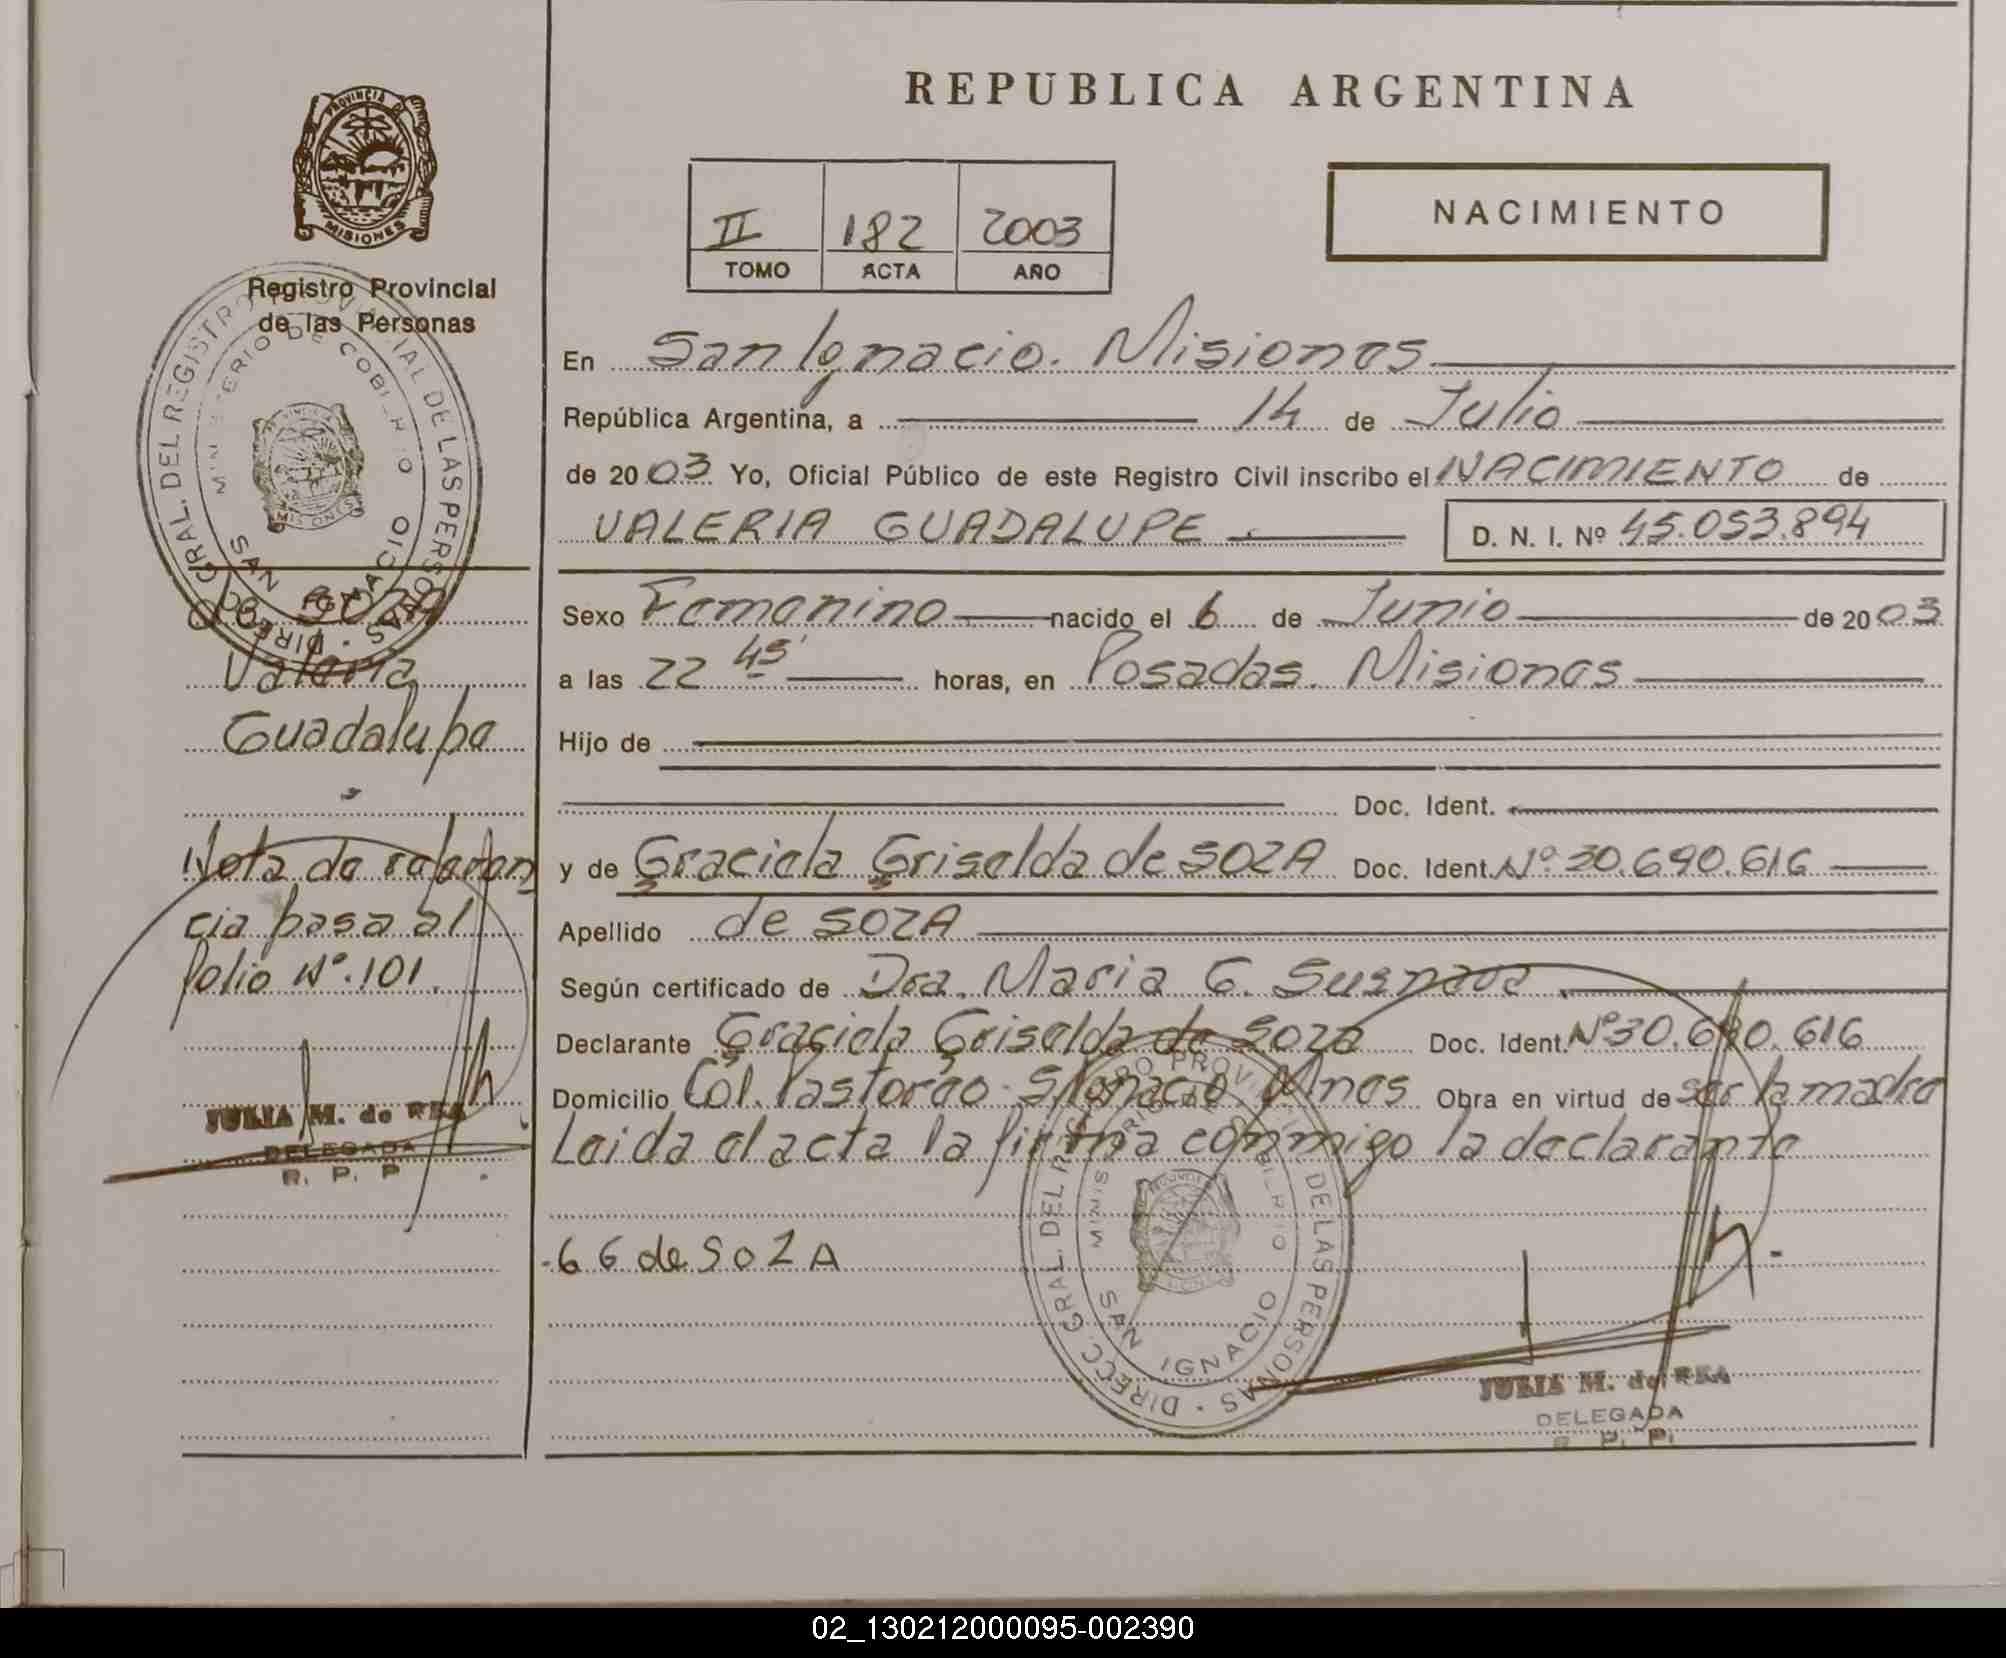 REPUBLICA ARGENTINA
PROVINCIA DE
MISIONES
Registro Provincial
de las Personas
II 182 2003
TOMO ACTA AÑO
NACIMIENTO
En San Ignacio. Misiones
República Argentina, a 14 de Julio
de 2003 Yo, Oficial Público de este Registro Civil inscribo el NACIMIENTO de
VALERIA GUADALUPE D. N. I. Nº 45.053.894
Sexo Femenino nacido el 6 de Junio de 2003
a las 22 45' horas, en Posadas. Misiones
Hijo de
Doc. Ident.
y de Graciela Griselda de SOZA Doc. Ident. Nº 30.690.616
Apellido de SOZA
Según certificado de Dra. Maria G.
Declarante Graciela Griselda de Soza Doc. Ident. Nº 30.690.616
Domicilio Col. Pastoreo S. Ignacio Mnes Obra en virtud de ser la madre
Leida el acta la firma conmigo la declarante
G G de SOZA
DIRECC. GRAL. DEL REGISTRO PROVINCIAL DE LAS PERSONAS
MINISTERIO DE GOBIERNO
SAN IGNACIO
JULIA M. de REA
DELEGADA
R. P. P.
DIRECC. GRAL. DEL REGISTRO PROVINCIAL DE LAS PERSONAS
MINISTERIO DE GOBIERNO
SAN IGNACIO
MISIONES
de SOZA
Valeria
Guadalupe
Nota de referen
cia pasa al
folio Nº.101.
JULIA M. de REA
DELEGADA
R. P. P
02_130212000095-002390